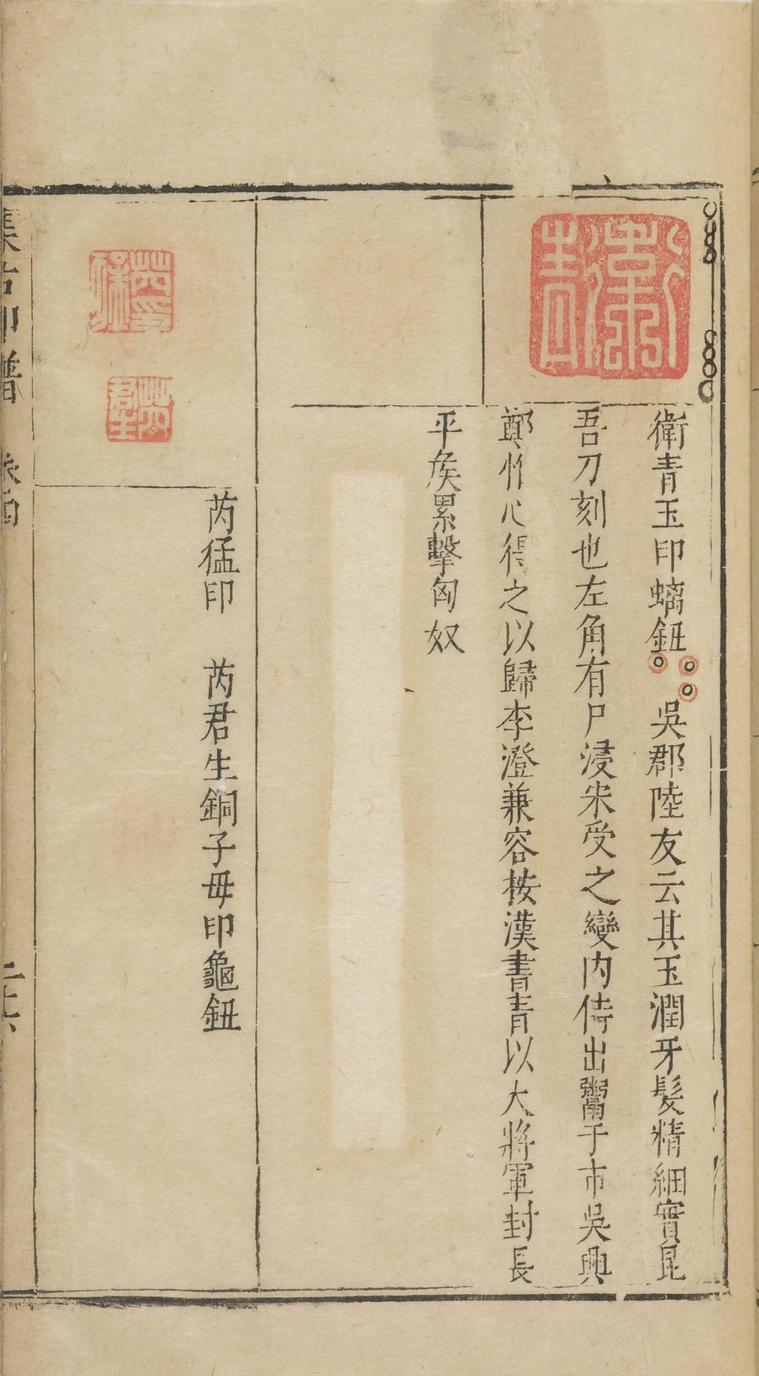 衛青
衛青玉印螭鈕 吳郡陸友云其玉潤牙髮精細實昆
吾刀刻也左角有尸浸朱受之變内侍出鬻于市吳興
鄭竹心得之以歸李澄兼容按漢書青以大將軍封長
平矦累擊匈奴
芮君生
芮猛印 芮君生銅子母印龜鈕
集古印譜 卷四
二十六